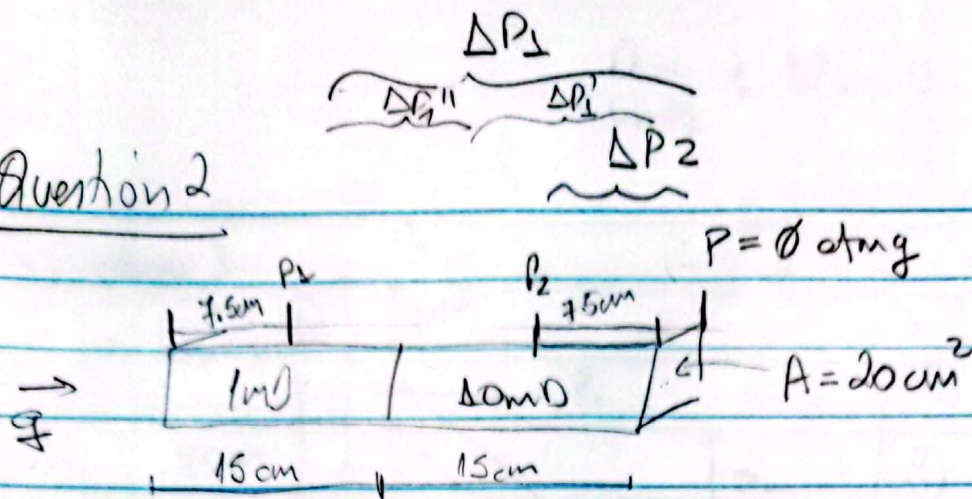 ΔP1
ΔP1" ΔP1'
ΔP2
Question 2
P = Ø atmg
P1 P2
7.5cm 7.5cm
→ 1mD 10mD A = 20 cm²
q
15 cm 15 cm